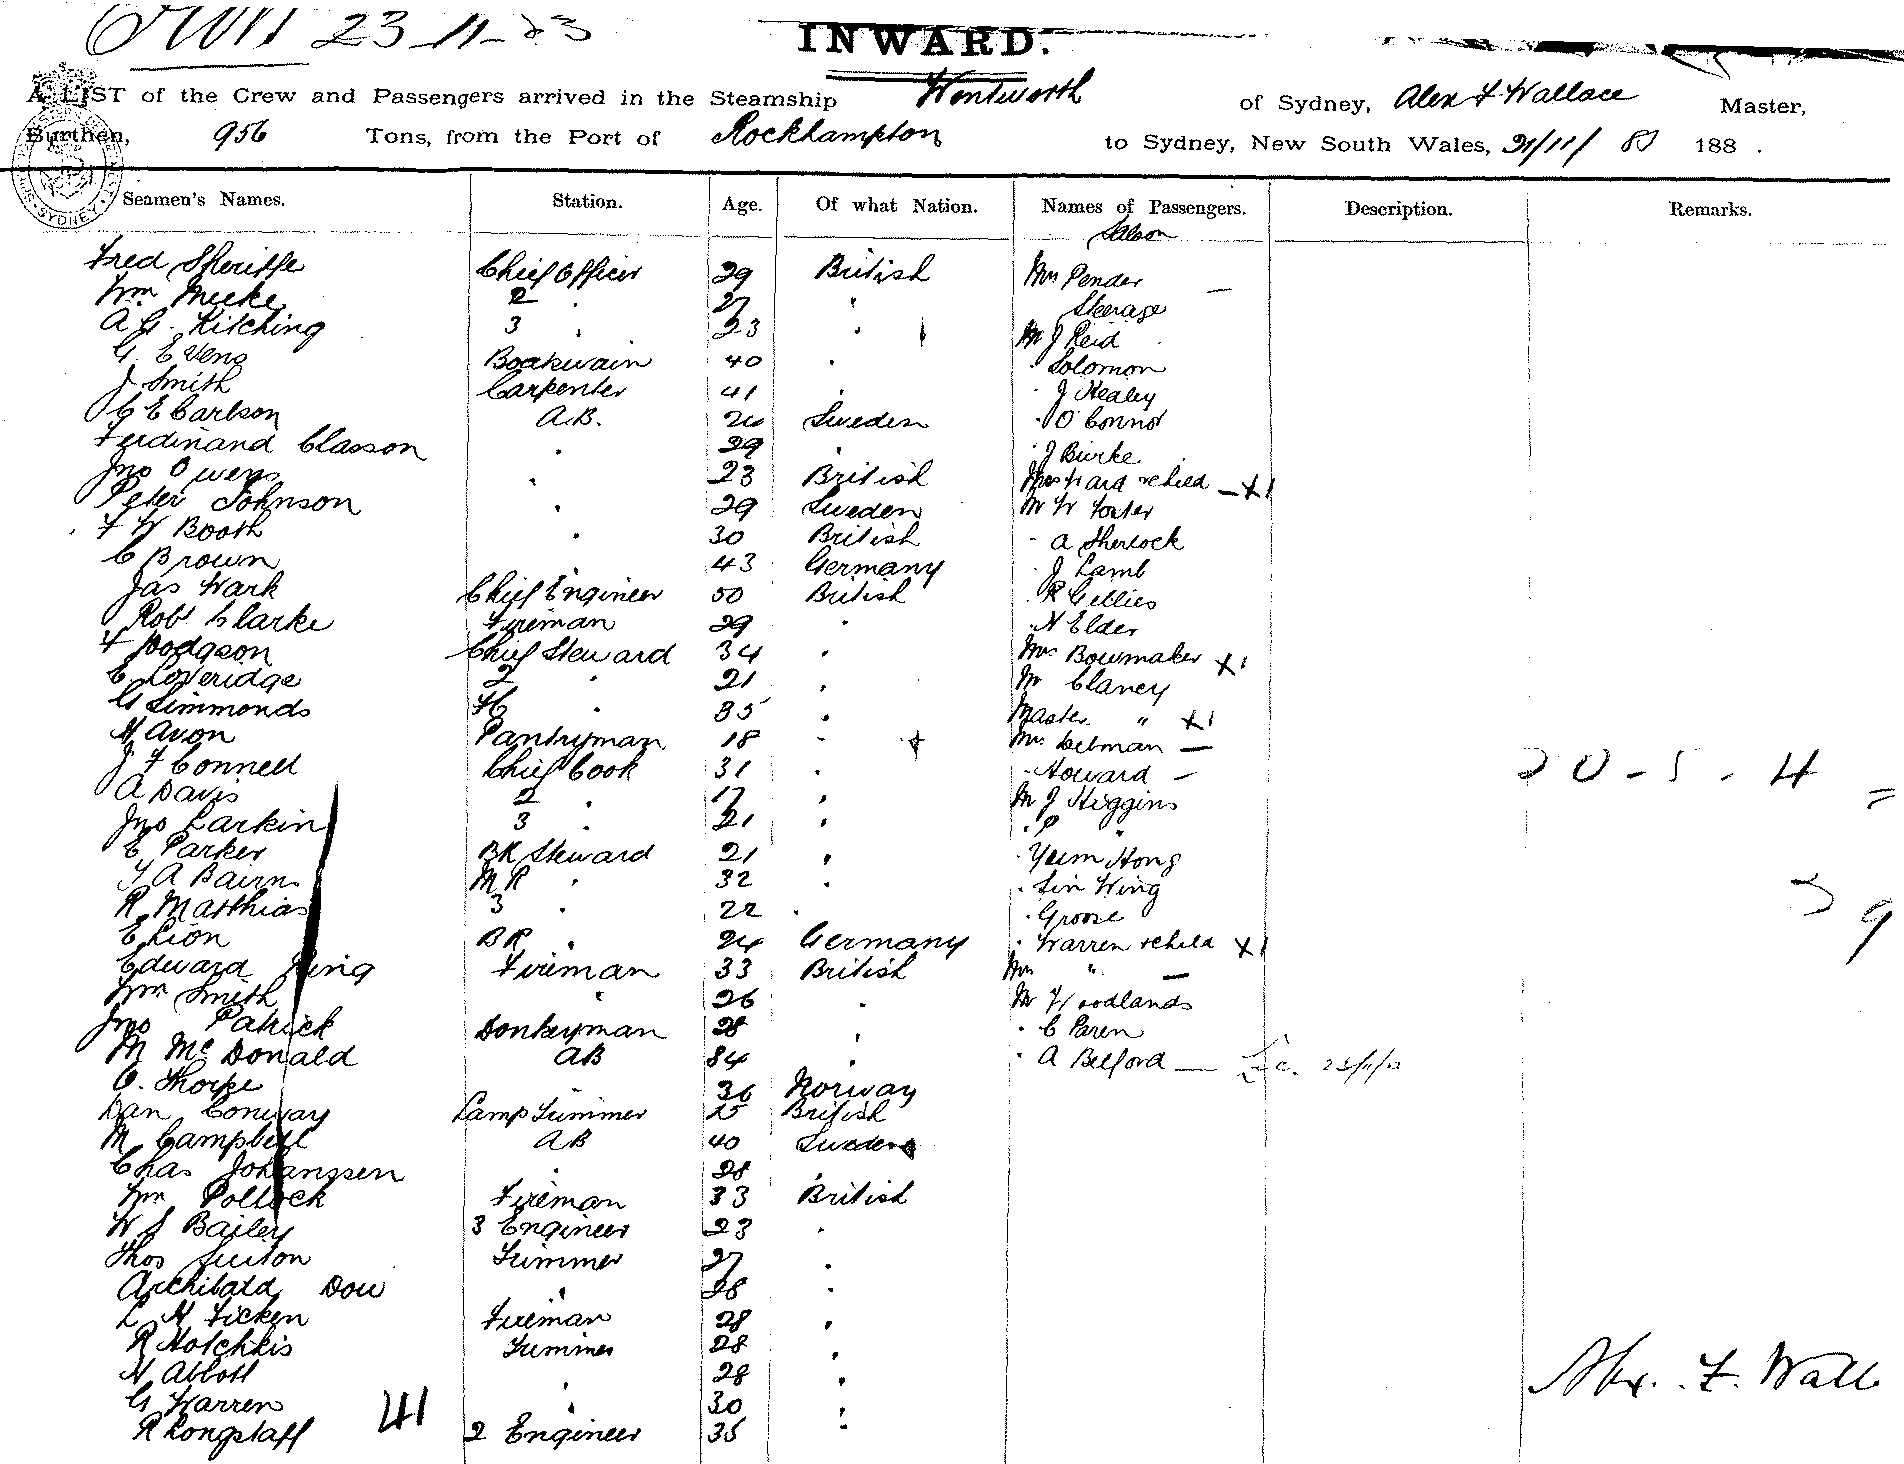 23-11-83
INWARD.
A LIST of the Crew and Passengers arrived in the Steamship Wentworth of Sydney, Alex F Wallace Master,
Burthen, 956 Tons, from the Port of Rockhampton to Sydney, New South Wales, 21/11/83 188 .
Seamen's Names. Station. Age. Of what Nation. Names of Passengers. Description. Remarks.
Saloon
Fred Sheriffe Chief Officer 29 British Mrs Pender
Wm Meeke 2 " 27 " Steerage
A G. Kitching 3 " 23 " Mr J Reid
G. Evens Boatswain 40 " " Solomon
J Smith Carpenter 41 " " J Healey
C E Carlson A.B. 24 Sweden " O'Connor
Ferdinand Classon " 29 " " J Burke
Jno Owens " 23 British Mrs Ward & child - X1
Peter Johnson " 29 Sweden Mr W Foster
F W Booth " 30 British " A Sherlock
C Brown " 43 Germany " J Lamb
Jas Wark Chief Engineer 50 British " R Gellies
Robt Clarke Fireman 29 " " H Elder
F Hodgson Chief Steward 34 " Mrs Bowmaker X1
C Loveridge 2 " 21 " Mr Clancy
G Simmonds " 35 " Master " X1
H Avon Pantryman 18 " Mrs —
J F Connell Chief Cook 31 " " Howard —
A Davis 2 " 17 " Mr J Higgins 20-5-4
Jno Larkin 3 " 21 " " P "
E Parker BR Steward 21 " " Yum Hong
A Bairn MR " 32 " " Sin Wing
R Matthias 3 " 22 " " Groose
E Lion BR " 24 Germany " Warren & child X1
Edward King Fireman 33 British Mrs " —
Wm Smith " 26 " Mr Woodlands
Jno Patrick Donkeyman 28 " " C Paren
M McDonald AB 34 " " A Belford —
O. Thorpe 36 Norway
Dan Conway Lamp Trimmer 25 British
M Campbell AB 40 Sweden
Chas Johanssen " 28 "
Wm Pollock Fireman 33 British
W J Bailey 3 Engineer 23 "
Thos Trimmer 27 "
Archibald Dow " 28 "
L H Ficken Fireman 28 "
R Hotchkis Trimmer 28 "
H Abbott " 28 "
G Warren " 30 "
R Longstaff 2 Engineer 35 "
41
Alex. F. Wall